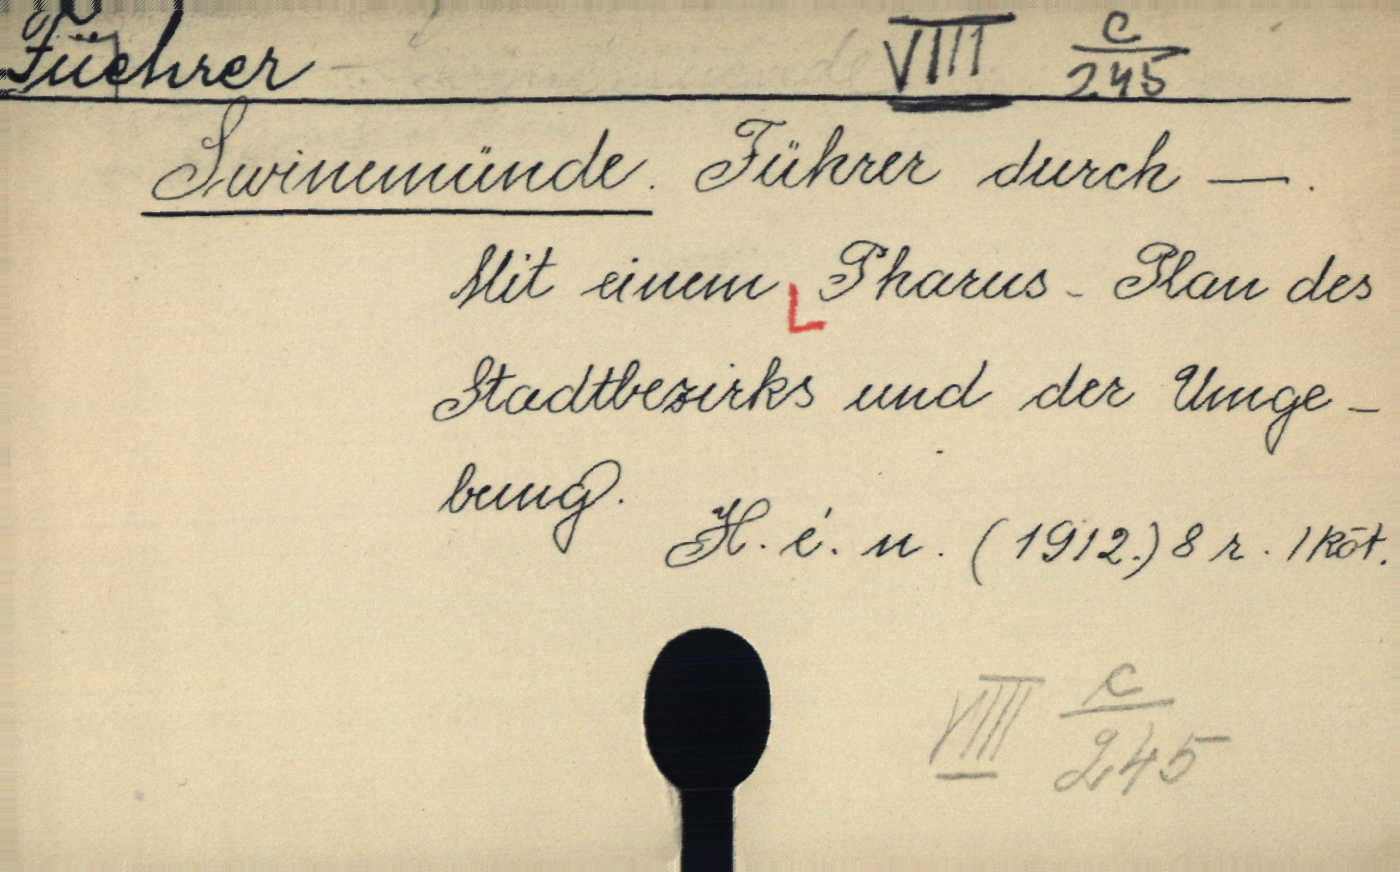 Füehrer VIII c/245
Swinemünde. Führer durch —.
Mit einem Pharus - Plan des
Stadtbezirks und der Umge-
bung.
H. é. n. (1912.) 8 r. 1 köt.
VIII c/245